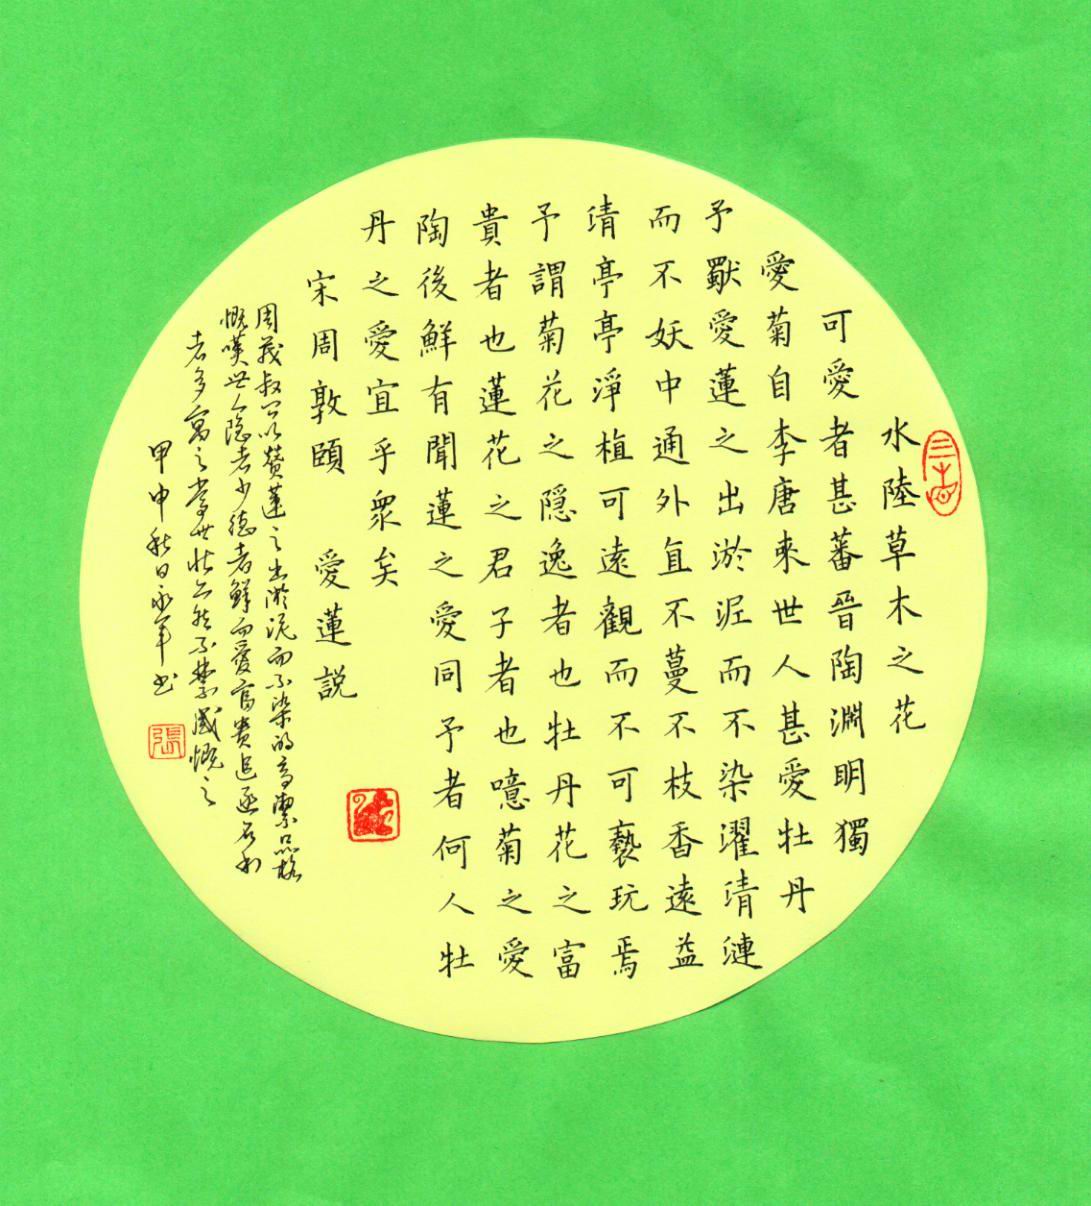 水陸草木之花
可愛者甚蕃晉陶淵明獨
愛菊自李唐來世人甚愛牡丹
予獨愛蓮之出淤泥而不染濯清漣
而不妖中通外直不蔓不枝香遠益
清亭亭淨植可遠觀而不可褻玩焉
予謂菊花之隱逸者也牡丹花之富
貴者也蓮花之君子者也噫菊之愛
陶後鮮有聞蓮之愛同予者何人牡
丹之愛宜乎眾矣
宋周敦頤 愛蓮説
周茂叔公以贊蓮之出淤泥而不染的高潔品格
慨嘆世隱者少德者鮮而愛富貴追逐名利
者多寓之當世狀亦然不禁感慨之
甲申秋日永年书
張